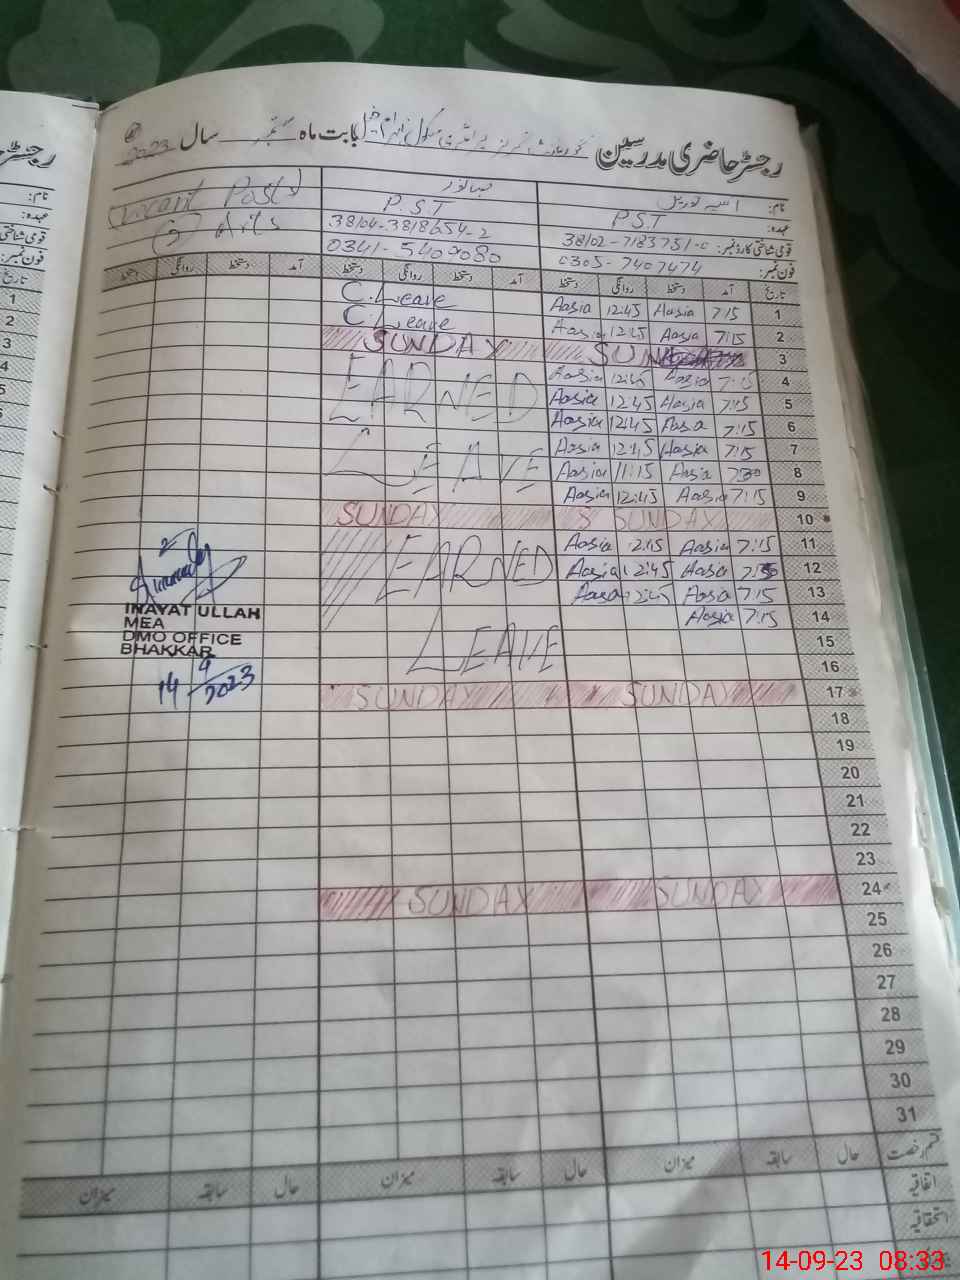 رجسٹر حاضری مدرسین
بابت ماہ ستمبر سال 2023
نام:
عہدہ: PST
قومی شناختی کارڈ نمبر:
فون نمبر: 0305-7407474
P.S.T
38104-3818654-2
0341-5409080
Vacant Post
Arts
تاریخ آمد دستخط روانگی دستخط آمد دستخط روانگی دستخط آمد دستخط روانگی دستخط
1 7:15 Aasia 12:45 Aasia C.Leave
2 7:15 Aasia 12:45 Aasia C.Leave
3 SUN SUNDAY
4 7:15 Aasia 12:45 Aasia EARNED
5 7:15 Aasia 12:45 Aasia
6 7:15 Aasia 12:45 Aasia
7 7:15 Aasia 12:45 Aasia LEAVE
8 Aasia 11:15 Aasia
9 7:15 Aasia 12:45 Aasia
10 S SUNDAY SUNDAY
11 7:15 Aasia Aasia EARNED
12 Aasia 12:45 Aasia
13 7:15 Aasia 12:45 Aasia
14 7:15 Aasia
15 LEAVE
16
17 SUNDAY SUNDAY
18
19
20
21
22
23
24 SUNDAY SUNDAY
25
26
27
28
29
30
31
INAYAT ULLAH
MEA
DMO OFFICE
BHAKKAR
14/9/2023
قسم رخصت حال سابقہ میزان حال سابقہ میزان حال سابقہ میزان
اتفاقیہ
استحقاقیہ
رجسٹر
نام:
عہدہ:
قومی شناختی
فون نمبر:
تاریخ
1
2
3
4
5
14-09-23 08:33